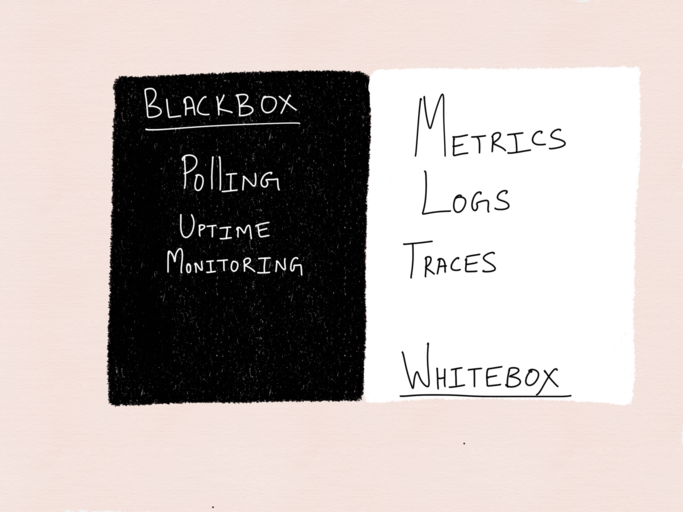 BLACKBOX
POLLING
UPTIME
MONITORING
METRICS
LOGS
TRACES
WHITEBOX